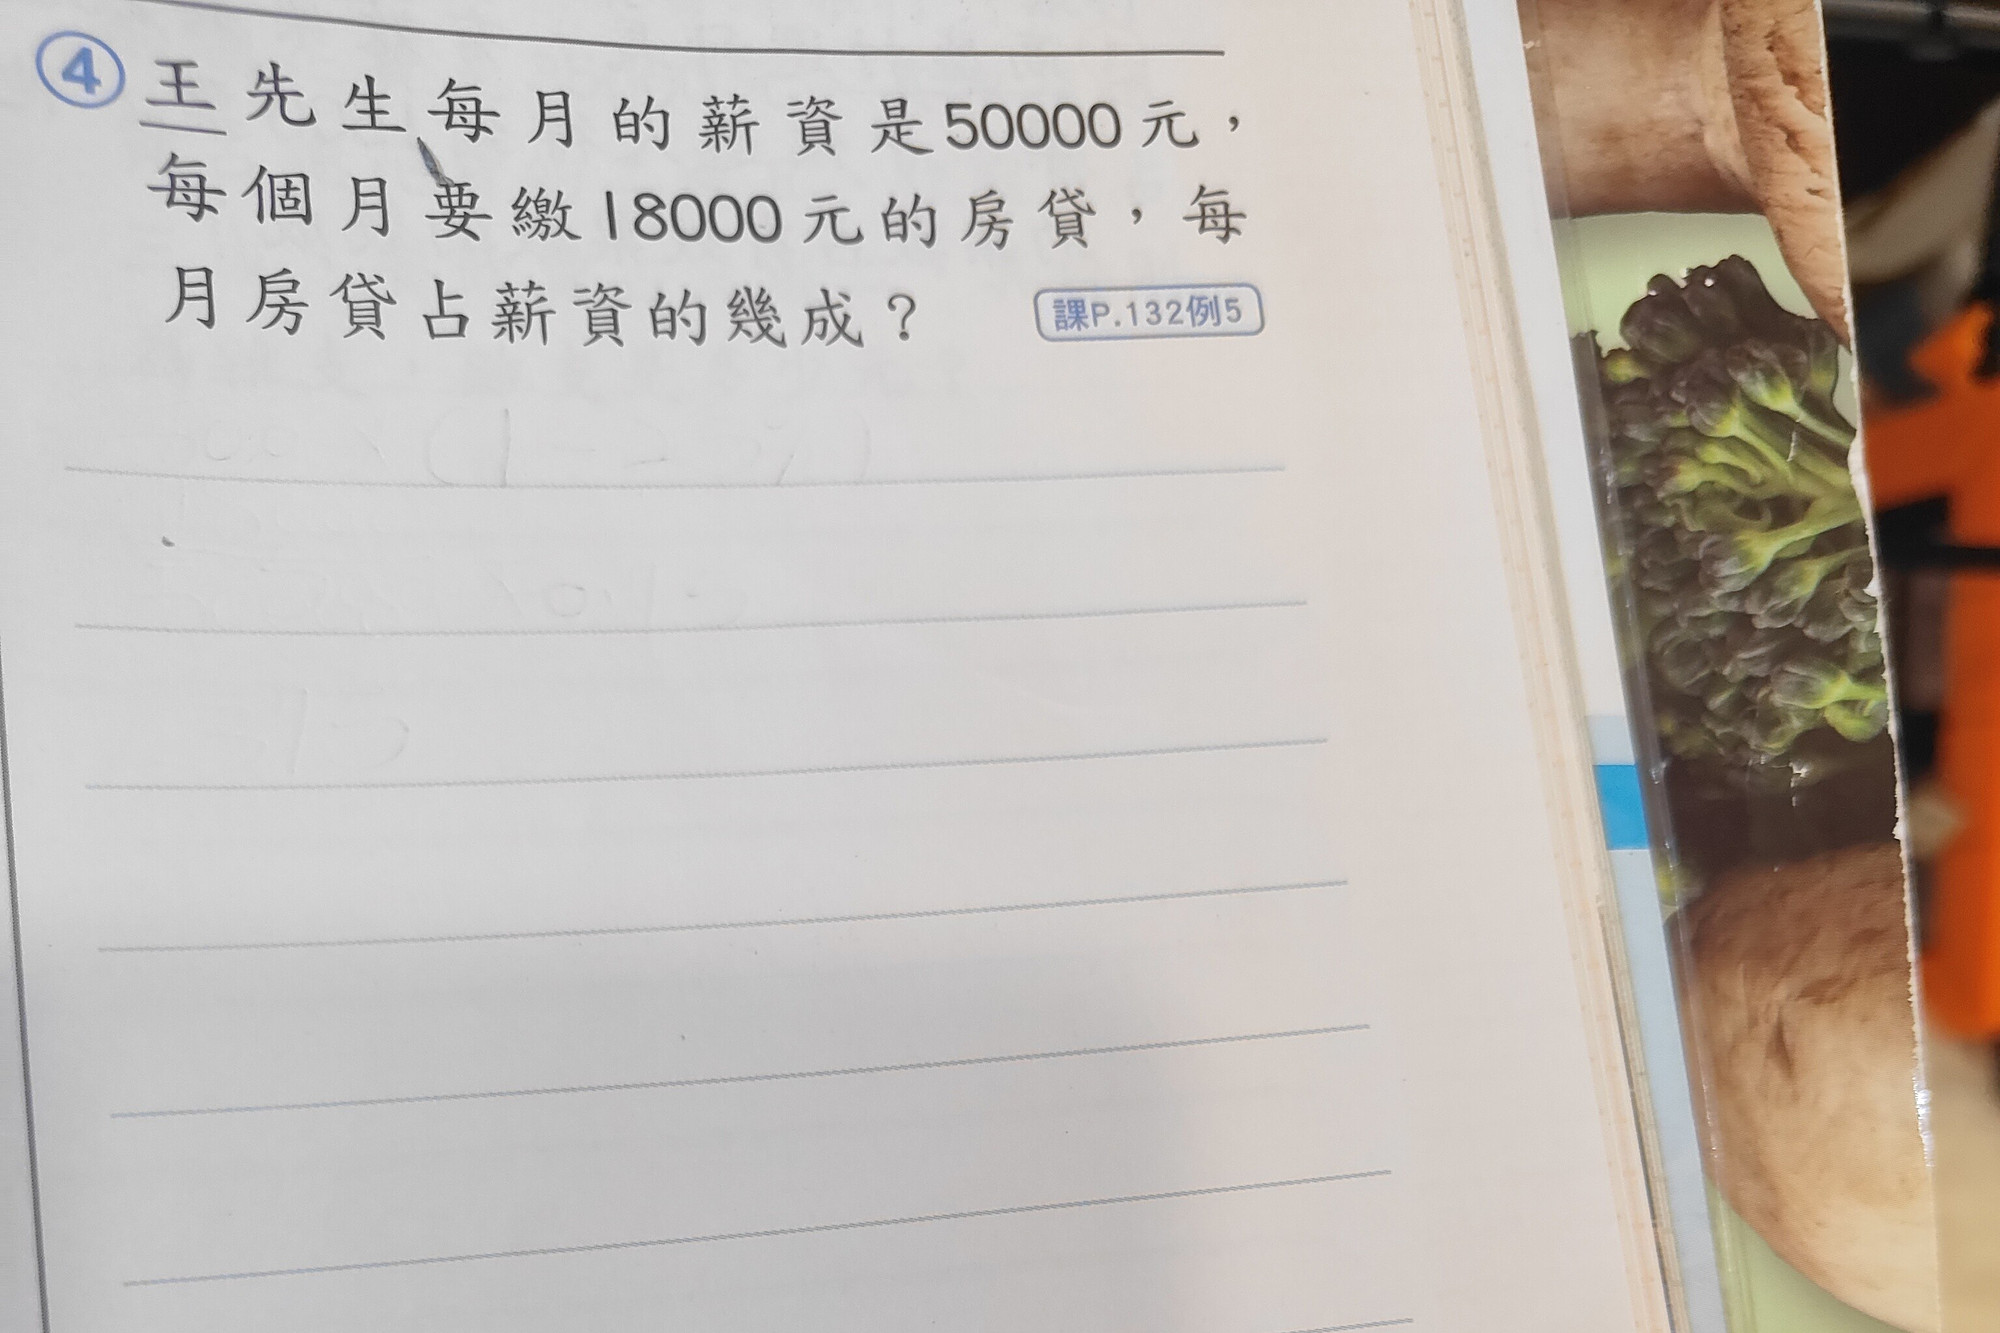 ④ 王先生每月的薪資是50000元，
每個月要繳18000元的房貸，每
月房貸占薪資的幾成？ 課P.132例5